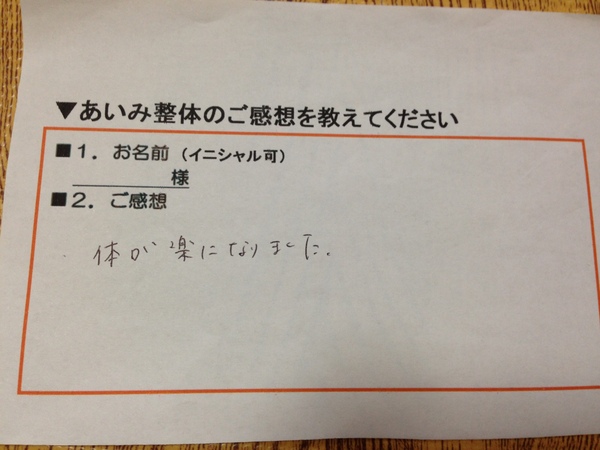 ▼あいみ整体のご感想を教えてください
■1．お名前（イニシャル可）
様
■2．ご感想
体が楽になりました。